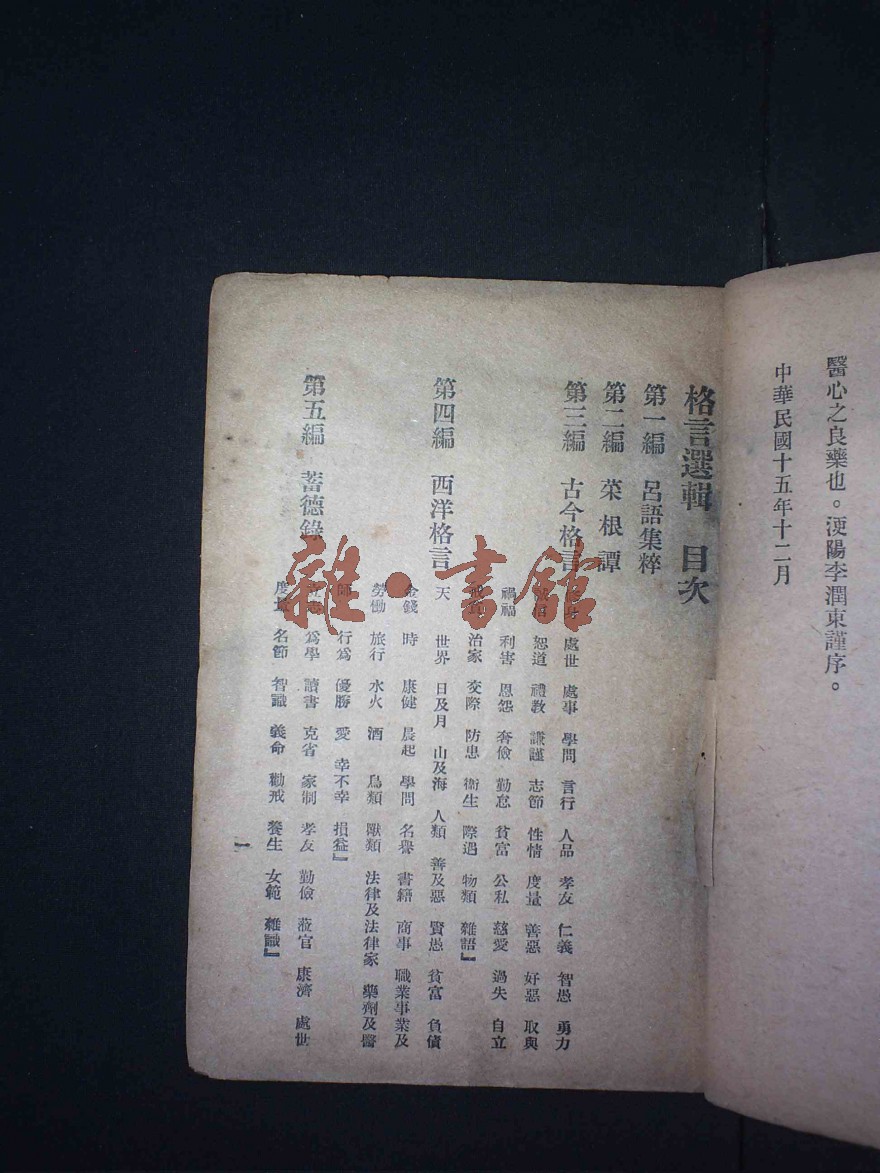 醫心之良藥也。浭陽李潤東謹序。
中華民國十五年十二月
格言選輯 目次
第一編 呂語集粹
第二編 菜根譚
第三編 古今格言
處世 處事 學問 言行 人品 孝友 仁義 智愚 勇力
恕道 禮教 謙謹 志節 性情 度量 善惡 好惡 取與
禍福 利害 恩怨 奢儉 勤怠 貧富 公私 慈愛 過失 自立
治家 交際 防患 衞生 際遇 物類 雜語』
第四編 西洋格言
天 世界 日及月 山及海 人類 善及惡 賢愚 貧富 負債
金錢 時 康健 晨起 學問 名譽 書籍 商事 職業事業及
勞働 旅行 水火 酒 鳥類 獸類 法律及法律家 藥劑及醫
師 行為 優勝 愛 幸不幸 損益』
第五編 蓄德錄
立志 為學 讀書 克省 家制 孝友 勤儉 蒞官 康濟 處世
度量 名節 智識 義命 勸戒 養生 女範 雜識』
一
雜·書館